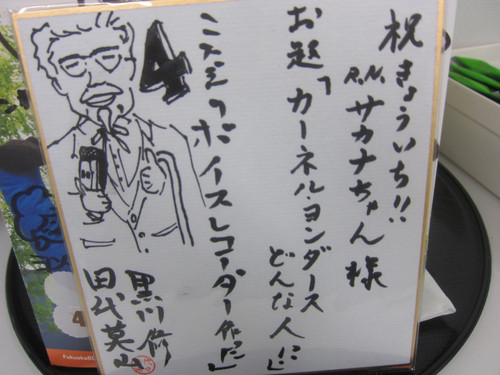 祝きょういち!!
R.N.サカナちゃん様
お題「カーネル・ヨンダース
どんな人!?」
4
ミスターボイスレコーダー作った」
黒川
田代英山
4
Fukuoka